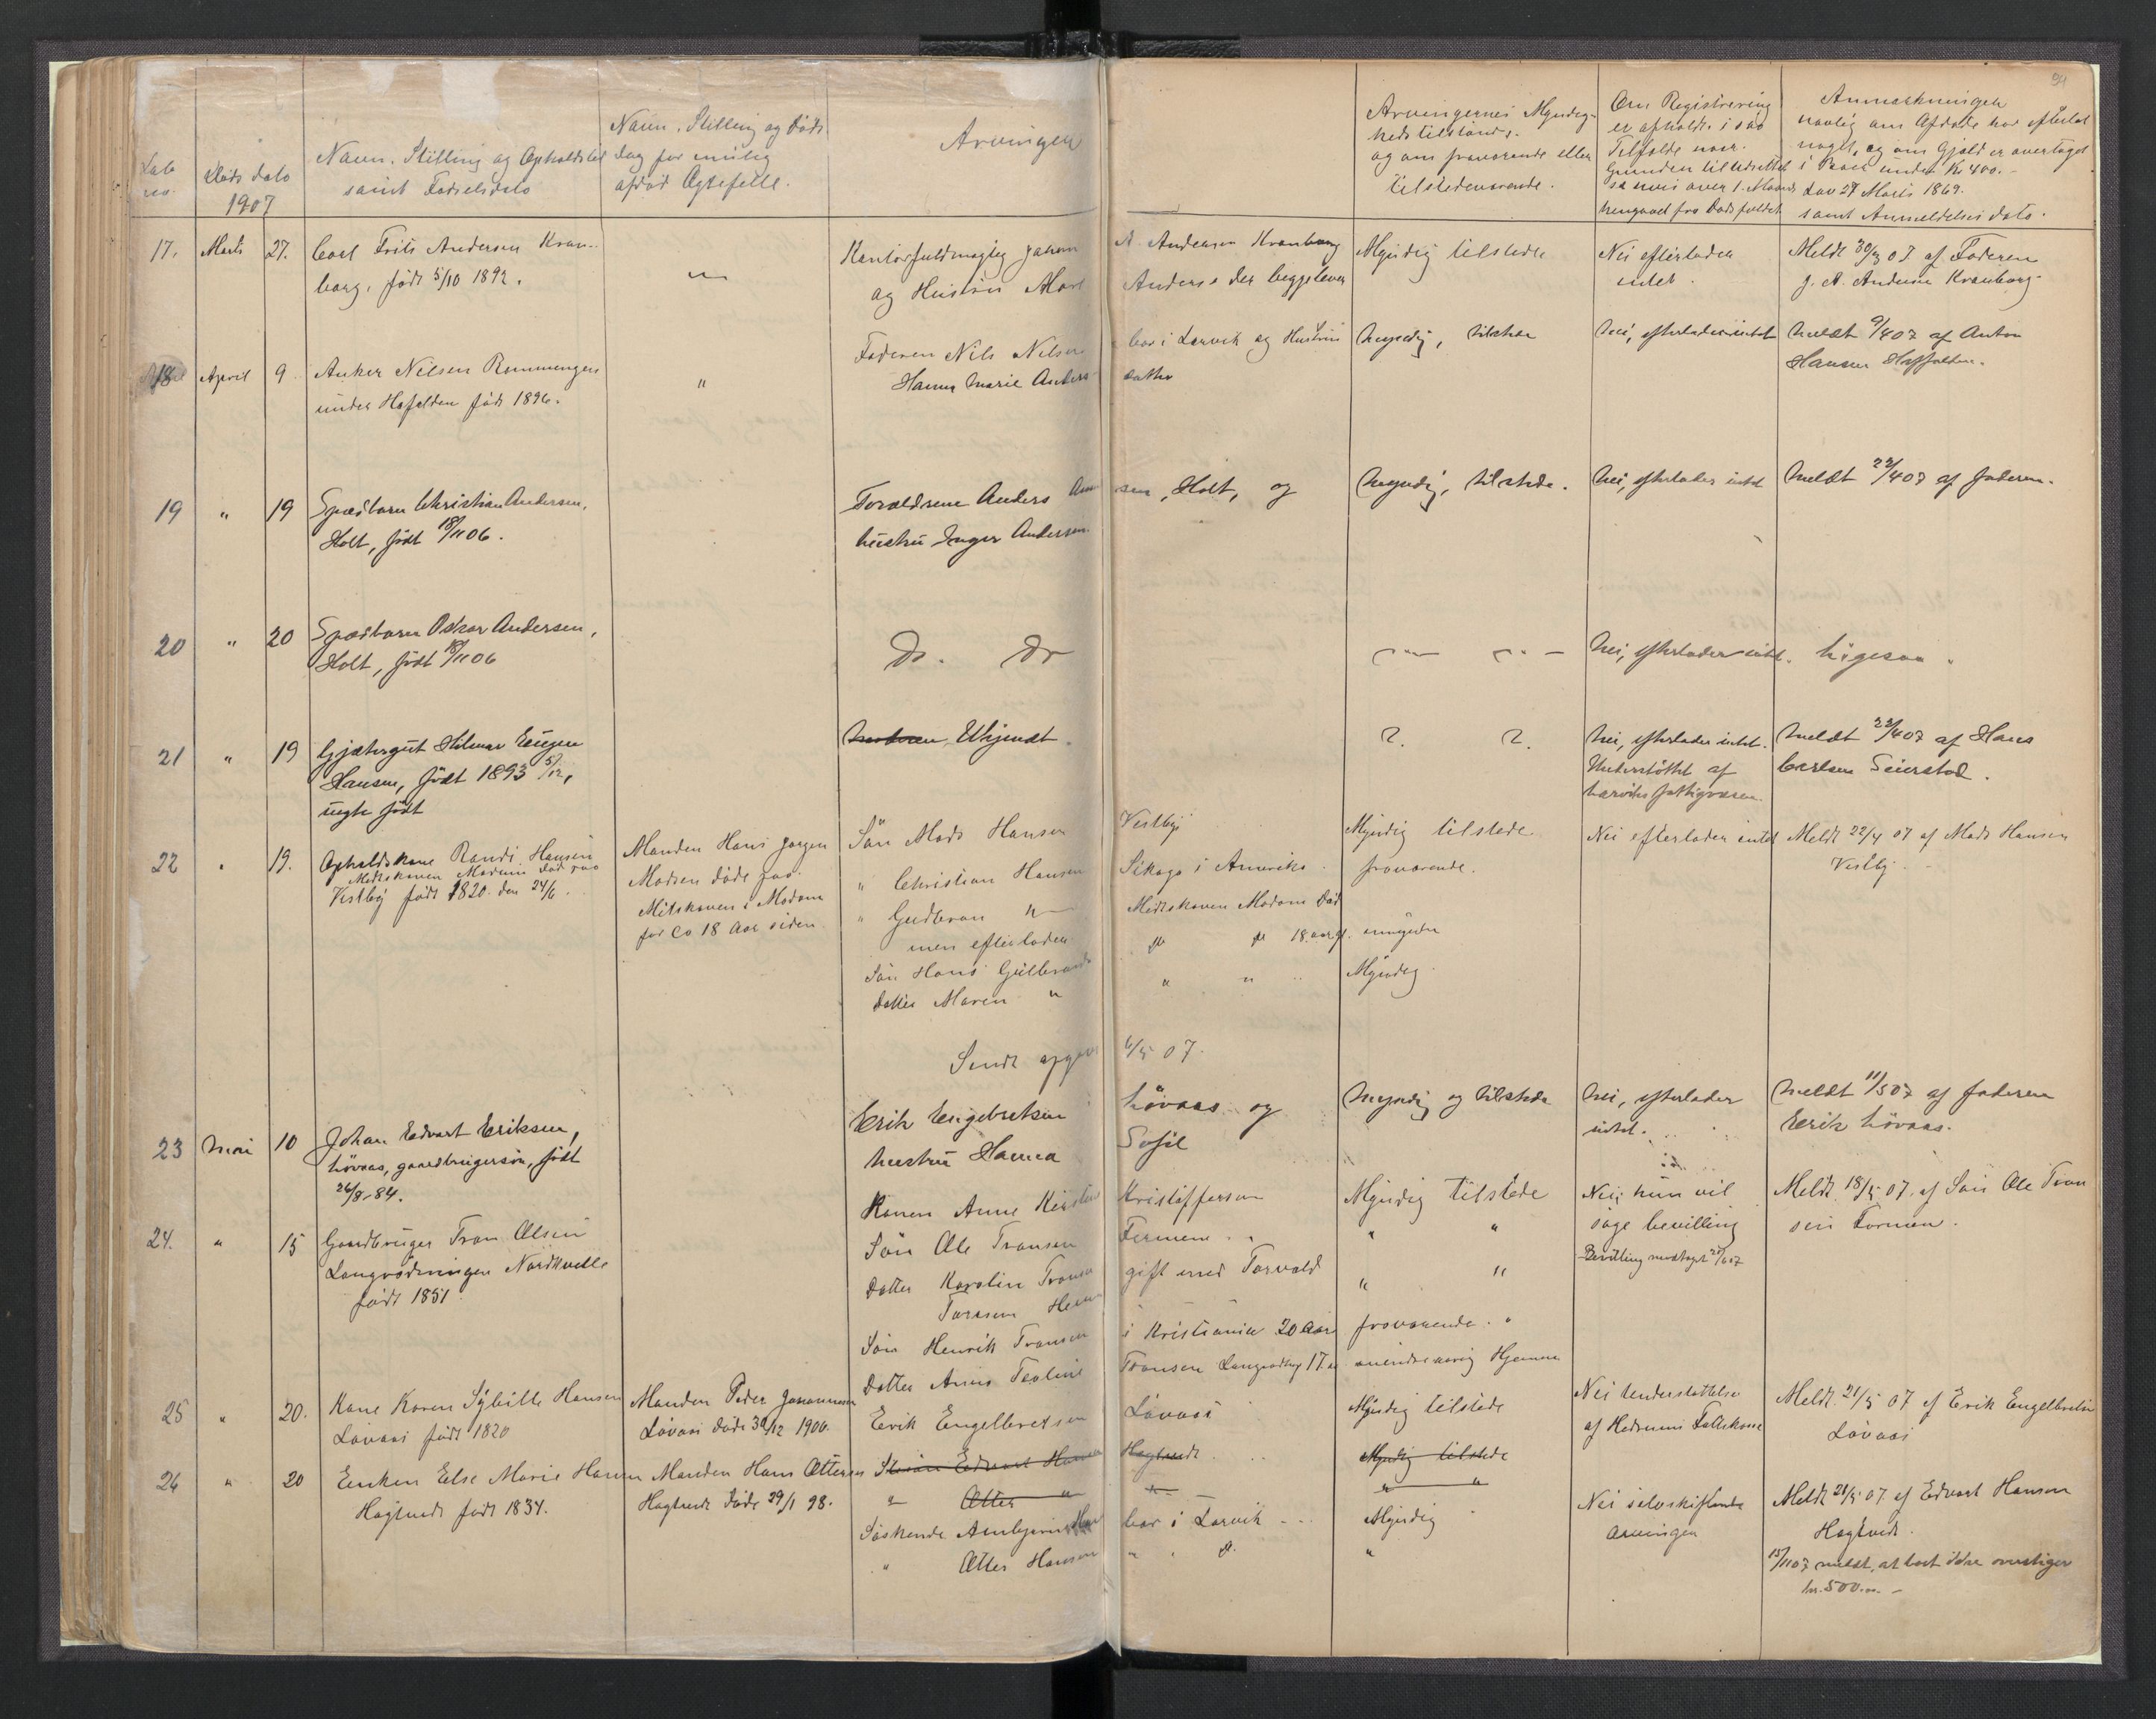 94
Løbe no. Døds dato 1907
Navn, Stilling og Opholdsted
samt Fødselsdato
Navn, Stilling og Døds
dag for mulig
afdød Ægtefelle.
Arvinger
Arvingernes Myndig-
hedstilstand.
og om fraværende eller
tilstedeværende.
Om Registrering
er afholdt i saa
Tilfælde naar.
Grunden til
hengaaet fra Dødsfaldet
Anmerkninger
navnlig om Afdøde har efterlat
noget, og om Gjæld er overtaget
i Boer under Kr 400.-
Lov 27 Marts 1869.
samt Anmeldelses dato.
17. Marts 27. Carl Frits Andersen Kron-
borg, født 5/10 1892.
Kontorfuldmægtig Johan A. Andersen Kronborg
og Hustru Andersen der begge lever
Myndig tilstede
Nei efterlader
intet.
Meldt 30/3 07. af Faderen
J. A. Andersen Kronborg
18 April 9. Anker Nilsen Rømmengen
under Hafalden født 1896.
"
Faderen Nils Nilsen bor i Larvik og Hustru
Hanna Marie Anders datter
Myndig, tilstede
Nei, efterlader intet
Meldt 9/4 07 af Anton
Hansen Haffalden.
19 " 19 Spædbarn Christian Andersen,
Holt, født 18/11 06.
Forældrene Anders Andersen, Holt, og
hustru Inger Andersen
Myndig, tilstede.
Nei, efterlader intet
Meldt 22/4 07 af faderen.
20 " 20 Spædbarn Oskar Andersen,
Holt, født 18/11 06
Do. Do
Nei, efterlader intet.
Ligesaa.
21 " 19 Gjætergut Hilmar Eugen
Hansen, født 1893 5/12,
uægte født
Ukjendt.
?. ?.
Nei, efterlader intet.
Understøttet af
Larviks fattigvæsen.
Meldt 22/4 07 af Hans
Carlsen Seierstad.
22 " 19. Opholdskone Randi Hansen
Vestby født 1820 den 24/6.
Manden Hans Jørgen
Madsen døde paa
Mitskoven i Modum
for ca 18 Aar siden
Søn Mads Hansen Vestby
" Christian Hansen Sikago i Amerika.
" Gudbran Midtskoven Modum Død
men efterlader
Søn Hans Gulbrands 18 aar gl.
Datter Maren " " "
Myndig tilstede
fraværende.
umyndig
Myndig.
Nei efterlader intet
Meldt 22/4 07 af Mads Hansen
Vestby.
Sendt opgave 6/5 07.
23 Mai 10 Johan Edvart Eriksen,
Løvaas, gaardbrugersøn, født
26/8-84.
Erik Engebretsen Løvaas og
hustru Hanna Sofie
Myndig og tilstede
Nei, efterlader
intet.
Meldt 11/5 07 af faderen
Erik Løvaas.
24. " 15 Gaardbruger Tron Olsen
Langrødningen Nordkvelle
født 1851
Konen Anne Kirstine Kristoffersen
Søn Ole Tronsen Farmen
Datter Karolin Tronsen gift med Torvald
Søn Henrik Tronsen i Kristiania 20 Aar
Datter Anna Teoline Tronsen 17 aar
Myndig tilstede
" "
" "
fraværende. "
mindreaarig Hjemme
Nei; hun vil
søge bevilling
Bevilling modtaget
Meldt 18/5 07. af Søn Ole Tron
sen Farmen.
25 " 20. Kone Karen Sybille Hansen
Løvaas født 1820
Manden Peder Johannesen
Løvaas døde 30/12 1900.
Erik Engelbretsen Løvaas
Myndig tilstede
Nei Understøttelse
af Hedrums Fattikasse
Meldt 21/5 07 af Erik Engelbretsen
Løvaas
26 " 20 Enken Else Marie Hansen
Hagtvedt født 1834.
Manden Hans Ottersen
Hagtvedt døde 29/1 98.
Edvart Hansen Hagtvedt
" Otter "
Søskende bor i Larvik
" Otter Hansen " "
Myndig tilstede
" "
Myndig
"
Nei selvskiftende
arvinger
Meldt 21/5 07. af Edvart Hansen
Hagtvedt.
15/11 07 meldt, at boet ikke overstiger
kr. 500.00.-